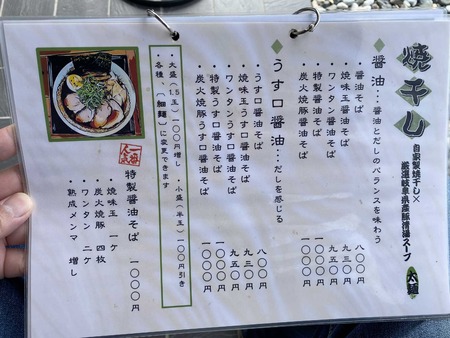 焼干し
自家製焼干し×
厳選岐阜県産豚清湯スープ
太麺
醤油…醤油とだしのバランスを味わう
・醤油そば 八〇〇円
・焼味玉醤油そば 九三〇円
・ワンタン醤油そば 九五〇円
・特製醤油そば 一〇〇〇円
・炭火焼豚醤油そば 一〇〇〇円
うす口醤油…だしを感じる
・うす口醤油そば 八〇〇円
・焼味玉うす口醤油そば 九三〇円
・ワンタンうす口醤油そば 九五〇円
・特製うす口醤油そば 一〇〇〇円
・炭火焼豚うす口醤油そば 一〇〇〇円
・大盛(1.5玉)一〇〇円増し ・小盛(半玉)一〇〇円引き
・各種、[細麺]に変更できます
一番人気
特製醤油そば 一〇〇〇円
・焼味玉 一ケ
・炭火焼豚 四枚
・ワンタン 二ケ
・熟成メンマ 増し